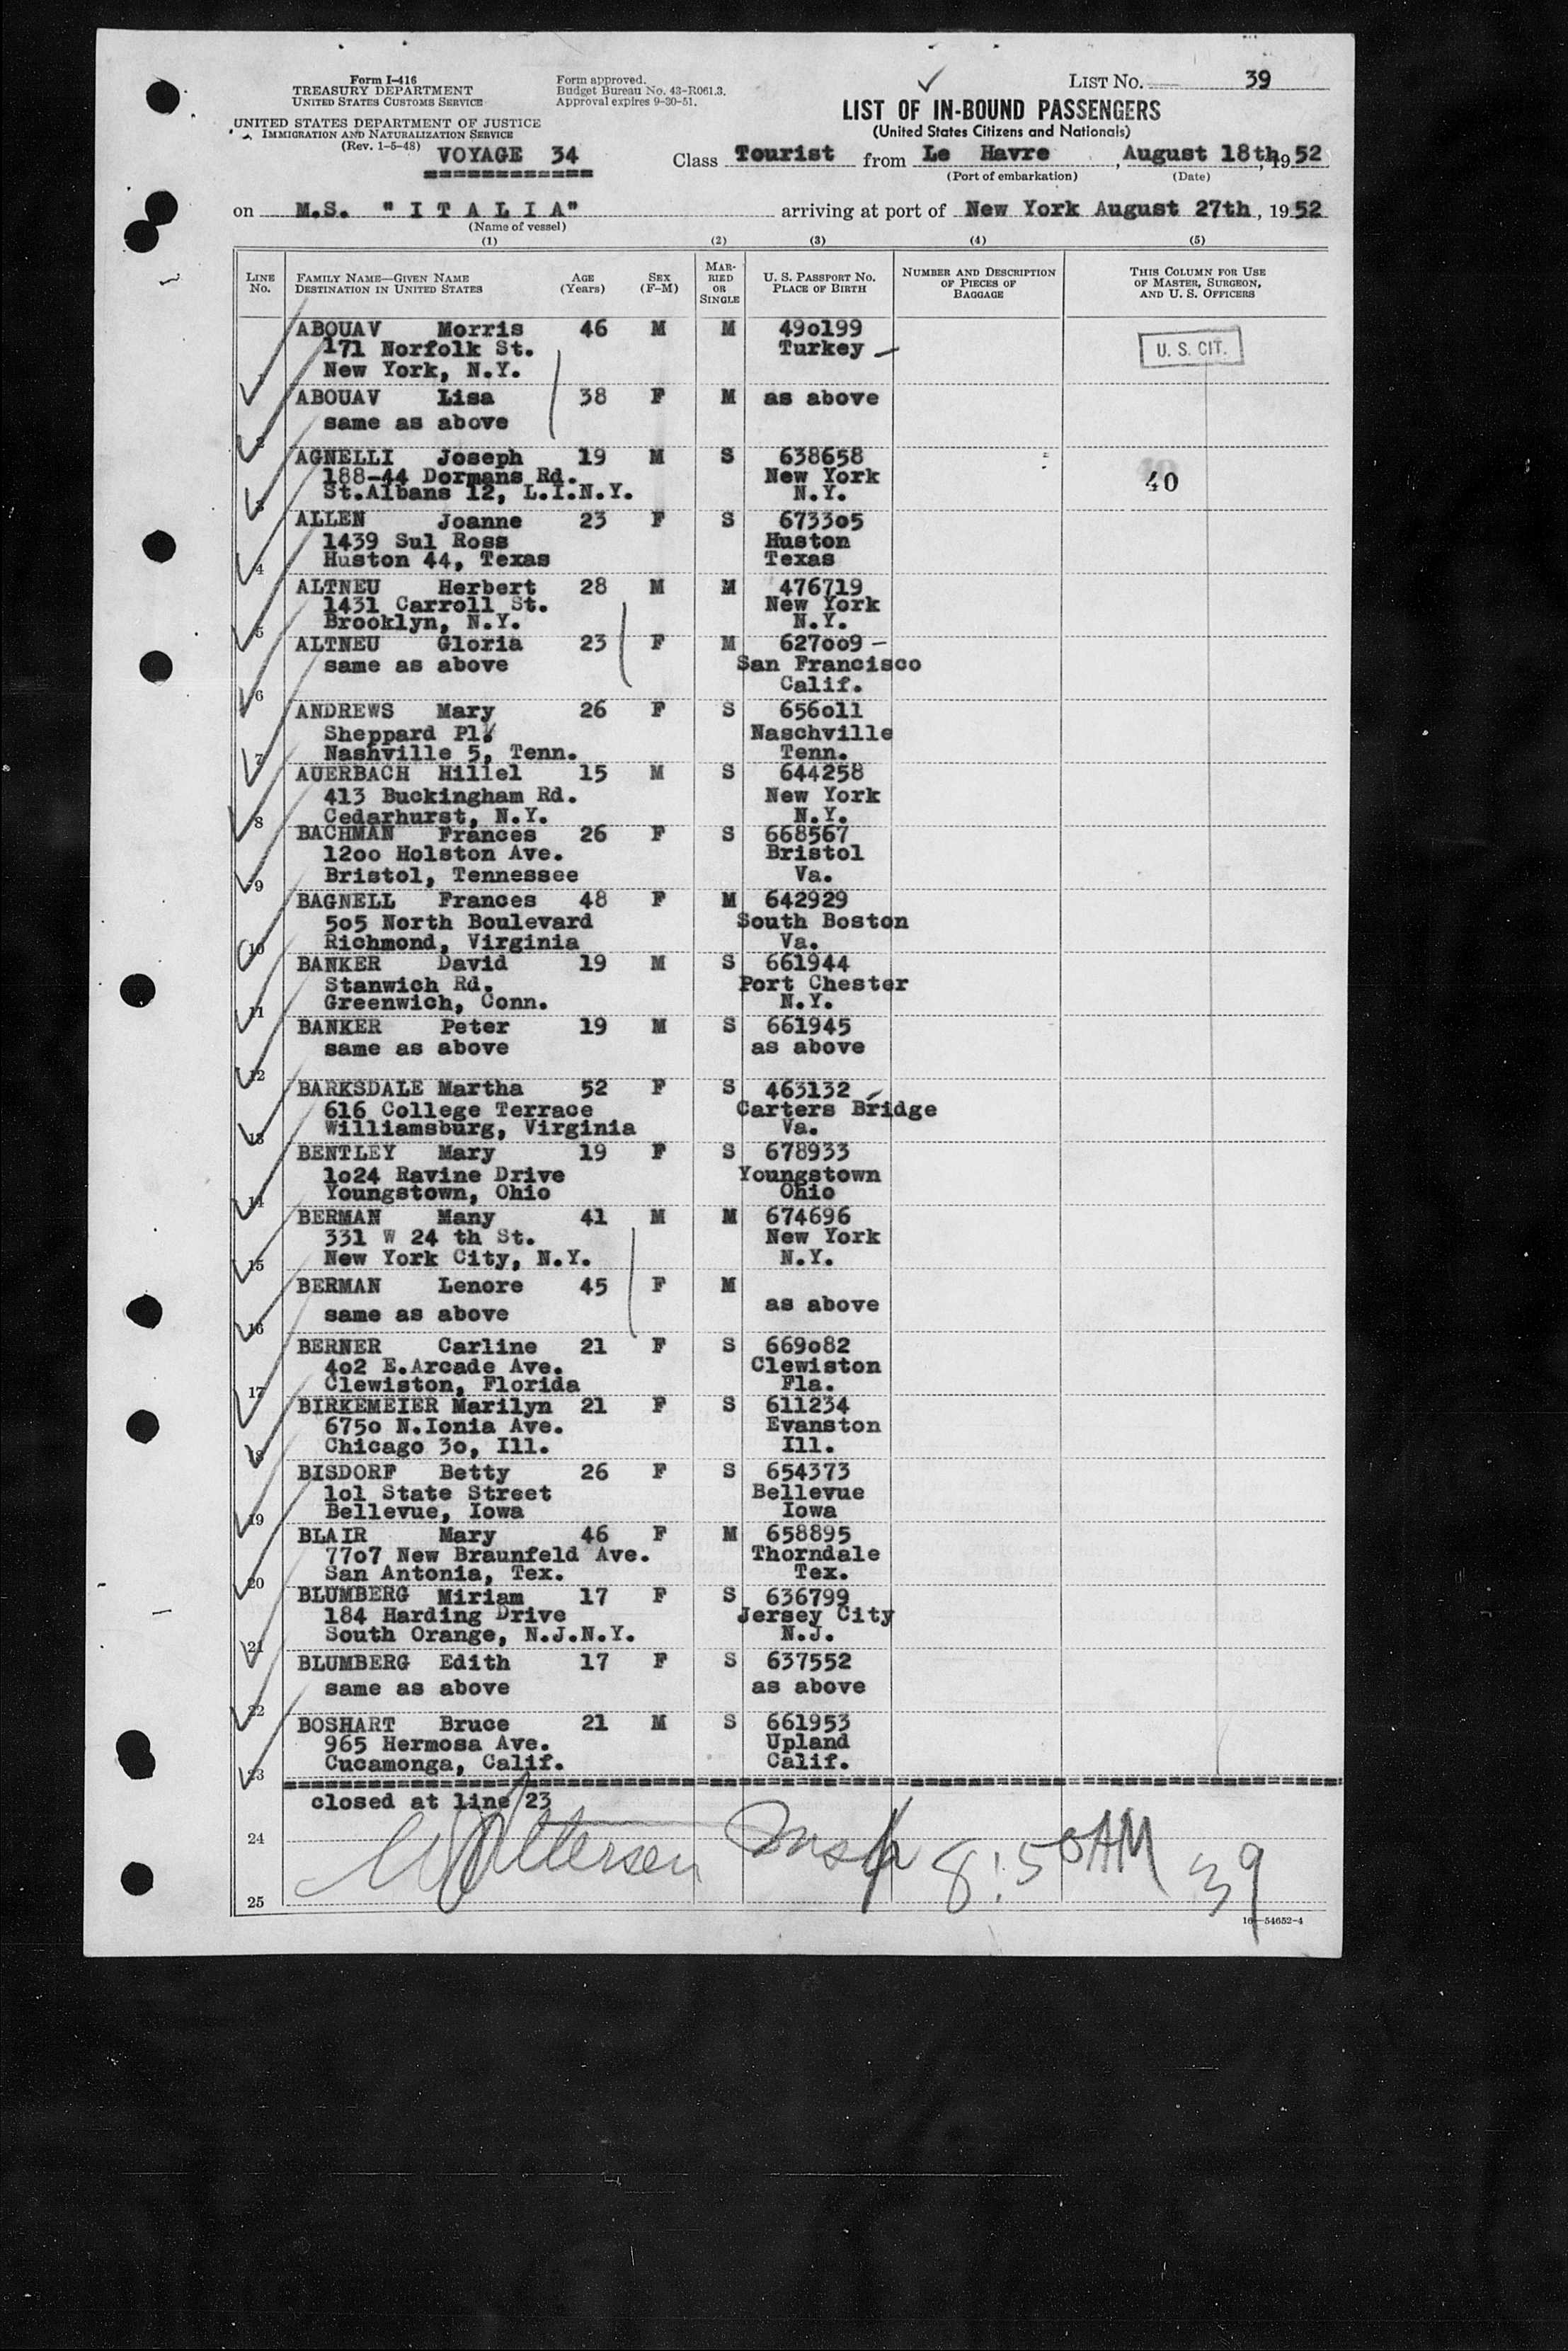 Form I-416
TREASURY DEPARTMENT
UNITED STATES CUSTOMS SERVICE
UNITED STATES DEPARTMENT OF JUSTICE
IMMIGRATION AND NATURALIZATION SERVICE
(Rev. 1-5-48)
VOYAGE 34
Form approved.
Budget Bureau No. 43-R061.3.
Approval expires 9-30-51.
LIST NO. 39
LIST OF IN-BOUND PASSENGERS
(United States Citizens and Nationals)
Class Tourist from Le Havre, August 18th, 1952
(Port of embarkation) (Date)
on M.S. "I T A L I A" arriving at port of New York August 27th, 1952
(Name of vessel)
(1) (2) (3) (4) (5)
LINE NO.
FAMILY NAME—GIVEN NAME
DESTINATION IN UNITED STATES
AGE (Years)
SEX (F-M)
MARRIED OR SINGLE
U. S. PASSPORT NO.
PLACE OF BIRTH
NUMBER AND DESCRIPTION OF PIECES OF BAGGAGE
THIS COLUMN FOR USE OF MASTER, SURGEON, AND U. S. OFFICERS
ABOUAV Morris 46 M M 49o199
171 Norfolk St. Turkey U. S. CIT.
1 New York, N.Y.
ABOUAV Lisa 38 F M as above
2 same as above
AGNELLI Joseph 19 M S 638658
188-44 Dormans Rd. New York 40
3 St.Albans 12, L.I.N.Y. N.Y.
ALLEN Joanne 23 F S 6733o5
1439 Sul Ross Huston
4 Huston 44, Texas Texas
ALTNEU Herbert 28 M M 476719
1431 Carroll St. New York
5 Brooklyn, N.Y. N.Y.
ALTNEU Gloria 23 F M 627oo9
same as above San Francisco
6 Calif.
ANDREWS Mary 26 F S 656o11
Sheppard Pl. Naschville
7 Nashville 5, Tenn. Tenn.
AUERBACH Hillel 15 M S 644258
413 Buckingham Rd. New York
8 Cedarhurst, N.Y. N.Y.
BACHMAN Frances 26 F S 668567
12oo Holston Ave. Bristol
9 Bristol, Tennessee Va.
BAGNELL Frances 48 F M 642929
5o5 North Boulevard South Boston
10 Richmond, Virginia Va.
BANKER David 19 M S 661944
Stanwich Rd. Port Chester
11 Greenwich, Conn. N.Y.
BANKER Peter 19 M S 661945
same as above as above
12
BARKSDALE Martha 52 F S 463132
616 College Terrace Carters Bridge
13 Williamsburg, Virginia Va.
BENTLEY Mary 19 F S 678933
1o24 Ravine Drive Youngstown
14 Youngstown, Ohio Ohio
BERMAN Many 41 M M 674696
331 W 24 th St. New York
15 New York City, N.Y. N.Y.
BERMAN Lenore 45 F M
16 same as above as above
BERNER Carline 21 F S 669o82
4o2 E.Arcade Ave. Clewiston
17 Clewiston, Florida Fla.
BIRKEMEIER Marilyn 21 F S 611234
675o N.Ionia Ave. Evanston
18 Chicago 3o, Ill. Ill.
BISDORF Betty 26 F S 654373
1o1 State Street Bellevue
19 Bellevue, Iowa Iowa
BLAIR Mary 46 F M 658895
77o7 New Braunfeld Ave. Thorndale
20 San Antonia, Tex. Tex.
BLUMBERG Miriam 17 F S 636799
184 Harding Drive Jersey City
21 South Orange, N.J.N.Y. N.J.
BLUMBERG Edith 17 F S 637552
22 same as above as above
BOSHART Bruce 21 M S 661953
965 Hermosa Ave. Upland
23 Cucamonga, Calif. Calif.
closed at line 23
24
8:50AM 39
25
16—54652-4